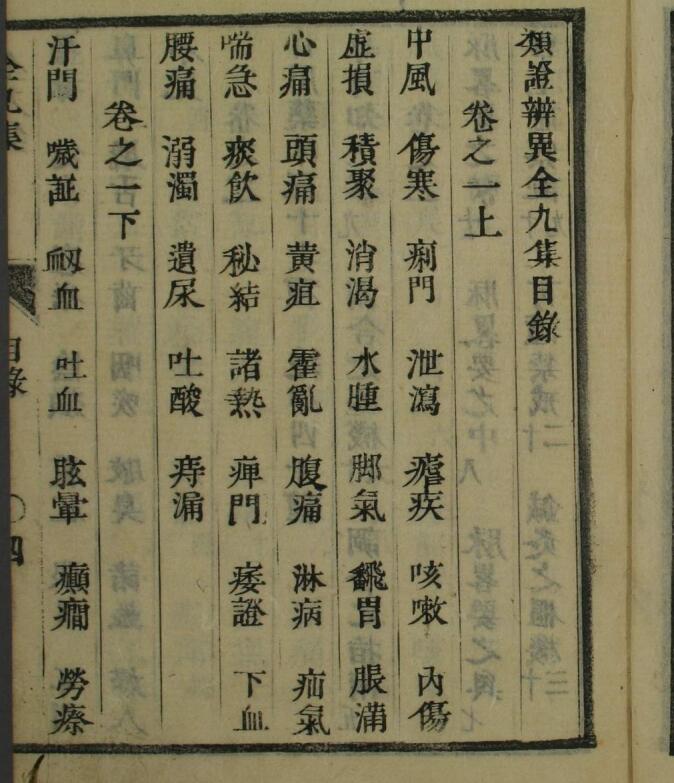 類證辨異全九集目錄
卷之一上
中風 傷寒 痢門 泄瀉 瘧疾 咳嗽 內傷
虛損 積聚 消渴 水腫 脚氣 飜胃 脹滿
心痛 頭痛 黃疸 霍亂 腹痛 淋病 疝氣
喘急 痰飲 秘結 諸熱 痺門 痿證 下血
腰痛 溺濁 遺尿 吐酸 痔漏
卷之一下
汗門 噦証 衂血 吐血 眩暈 癲癎 勞瘵
全九集 目錄 〇 四